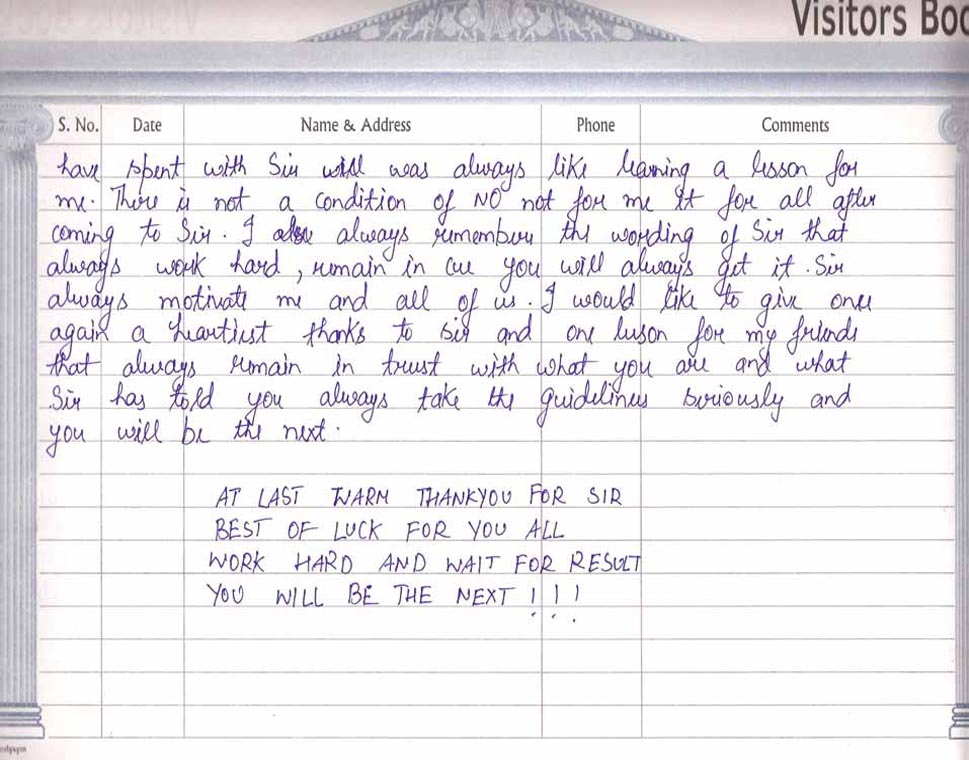 Visitors Boo
S. No. Date Name & Address Phone Comments
have spent with Sir will was always like learning a lesson for
me. There is not a condition of NO not for me it for all after
coming to Sir. I always remember the wording of Sir that
always work hard, remain in cue you will always get it. Sir
always motivate me and all of us. I would like to give once
again a heartiest thanks to sir and one lesson for my friends
that always remain in trust with what you are and what
Sir has told you always take the guidelines seriously and
you will be the next.
AT LAST WARM THANKYOU FOR SIR
BEST OF LUCK FOR YOU ALL
WORK HARD AND WAIT FOR RESULT
YOU WILL BE THE NEXT !!!